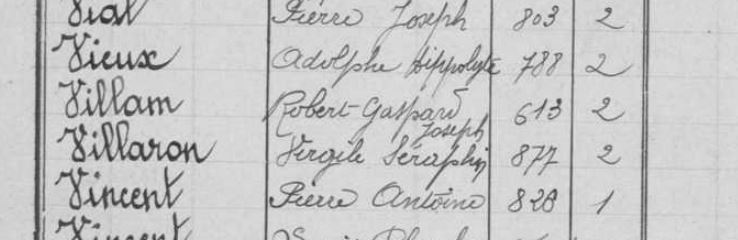 Vial Pierre Joseph 803 2
Vieux Adolphe Hippolyte 788 2
Villam Robert Gaspard Joseph 613 2
Villaron Virgile Séraphin 877 2
Vincent Pierre Antoine 828 1
Vincent